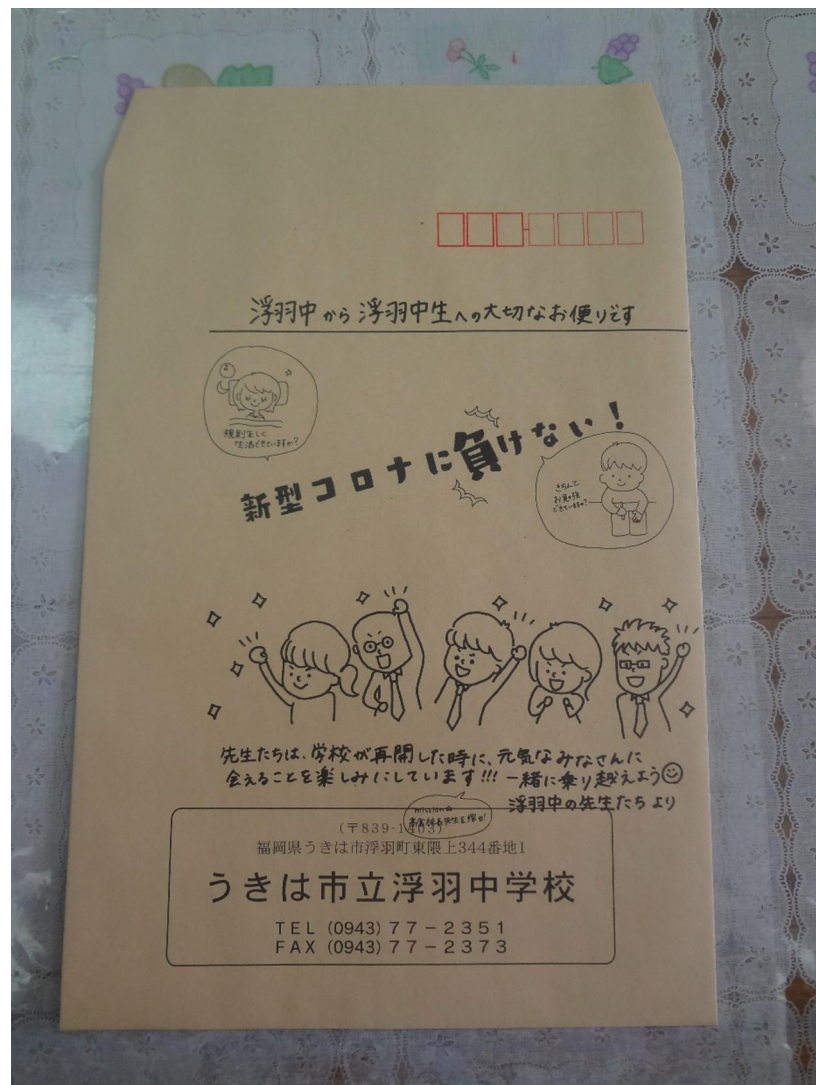 浮羽中から浮羽中生への大切なお便りです
規則正しく
生活できていますか？
新型コロナに負けない！
きちんと
お勉強
できていますか？
先生たちは、学校が再開した時に、元気なみなさんに
会えることを楽しみにしています!!! 一緒に乗り越えよう
浮羽中の先生たちより
mission☆
先生を探せ!
(〒839-1403)
福岡県うきは市浮羽町東隈上344番地1
うきは市立浮羽中学校
TEL (0943) 77－2351
FAX (0943) 77－2373